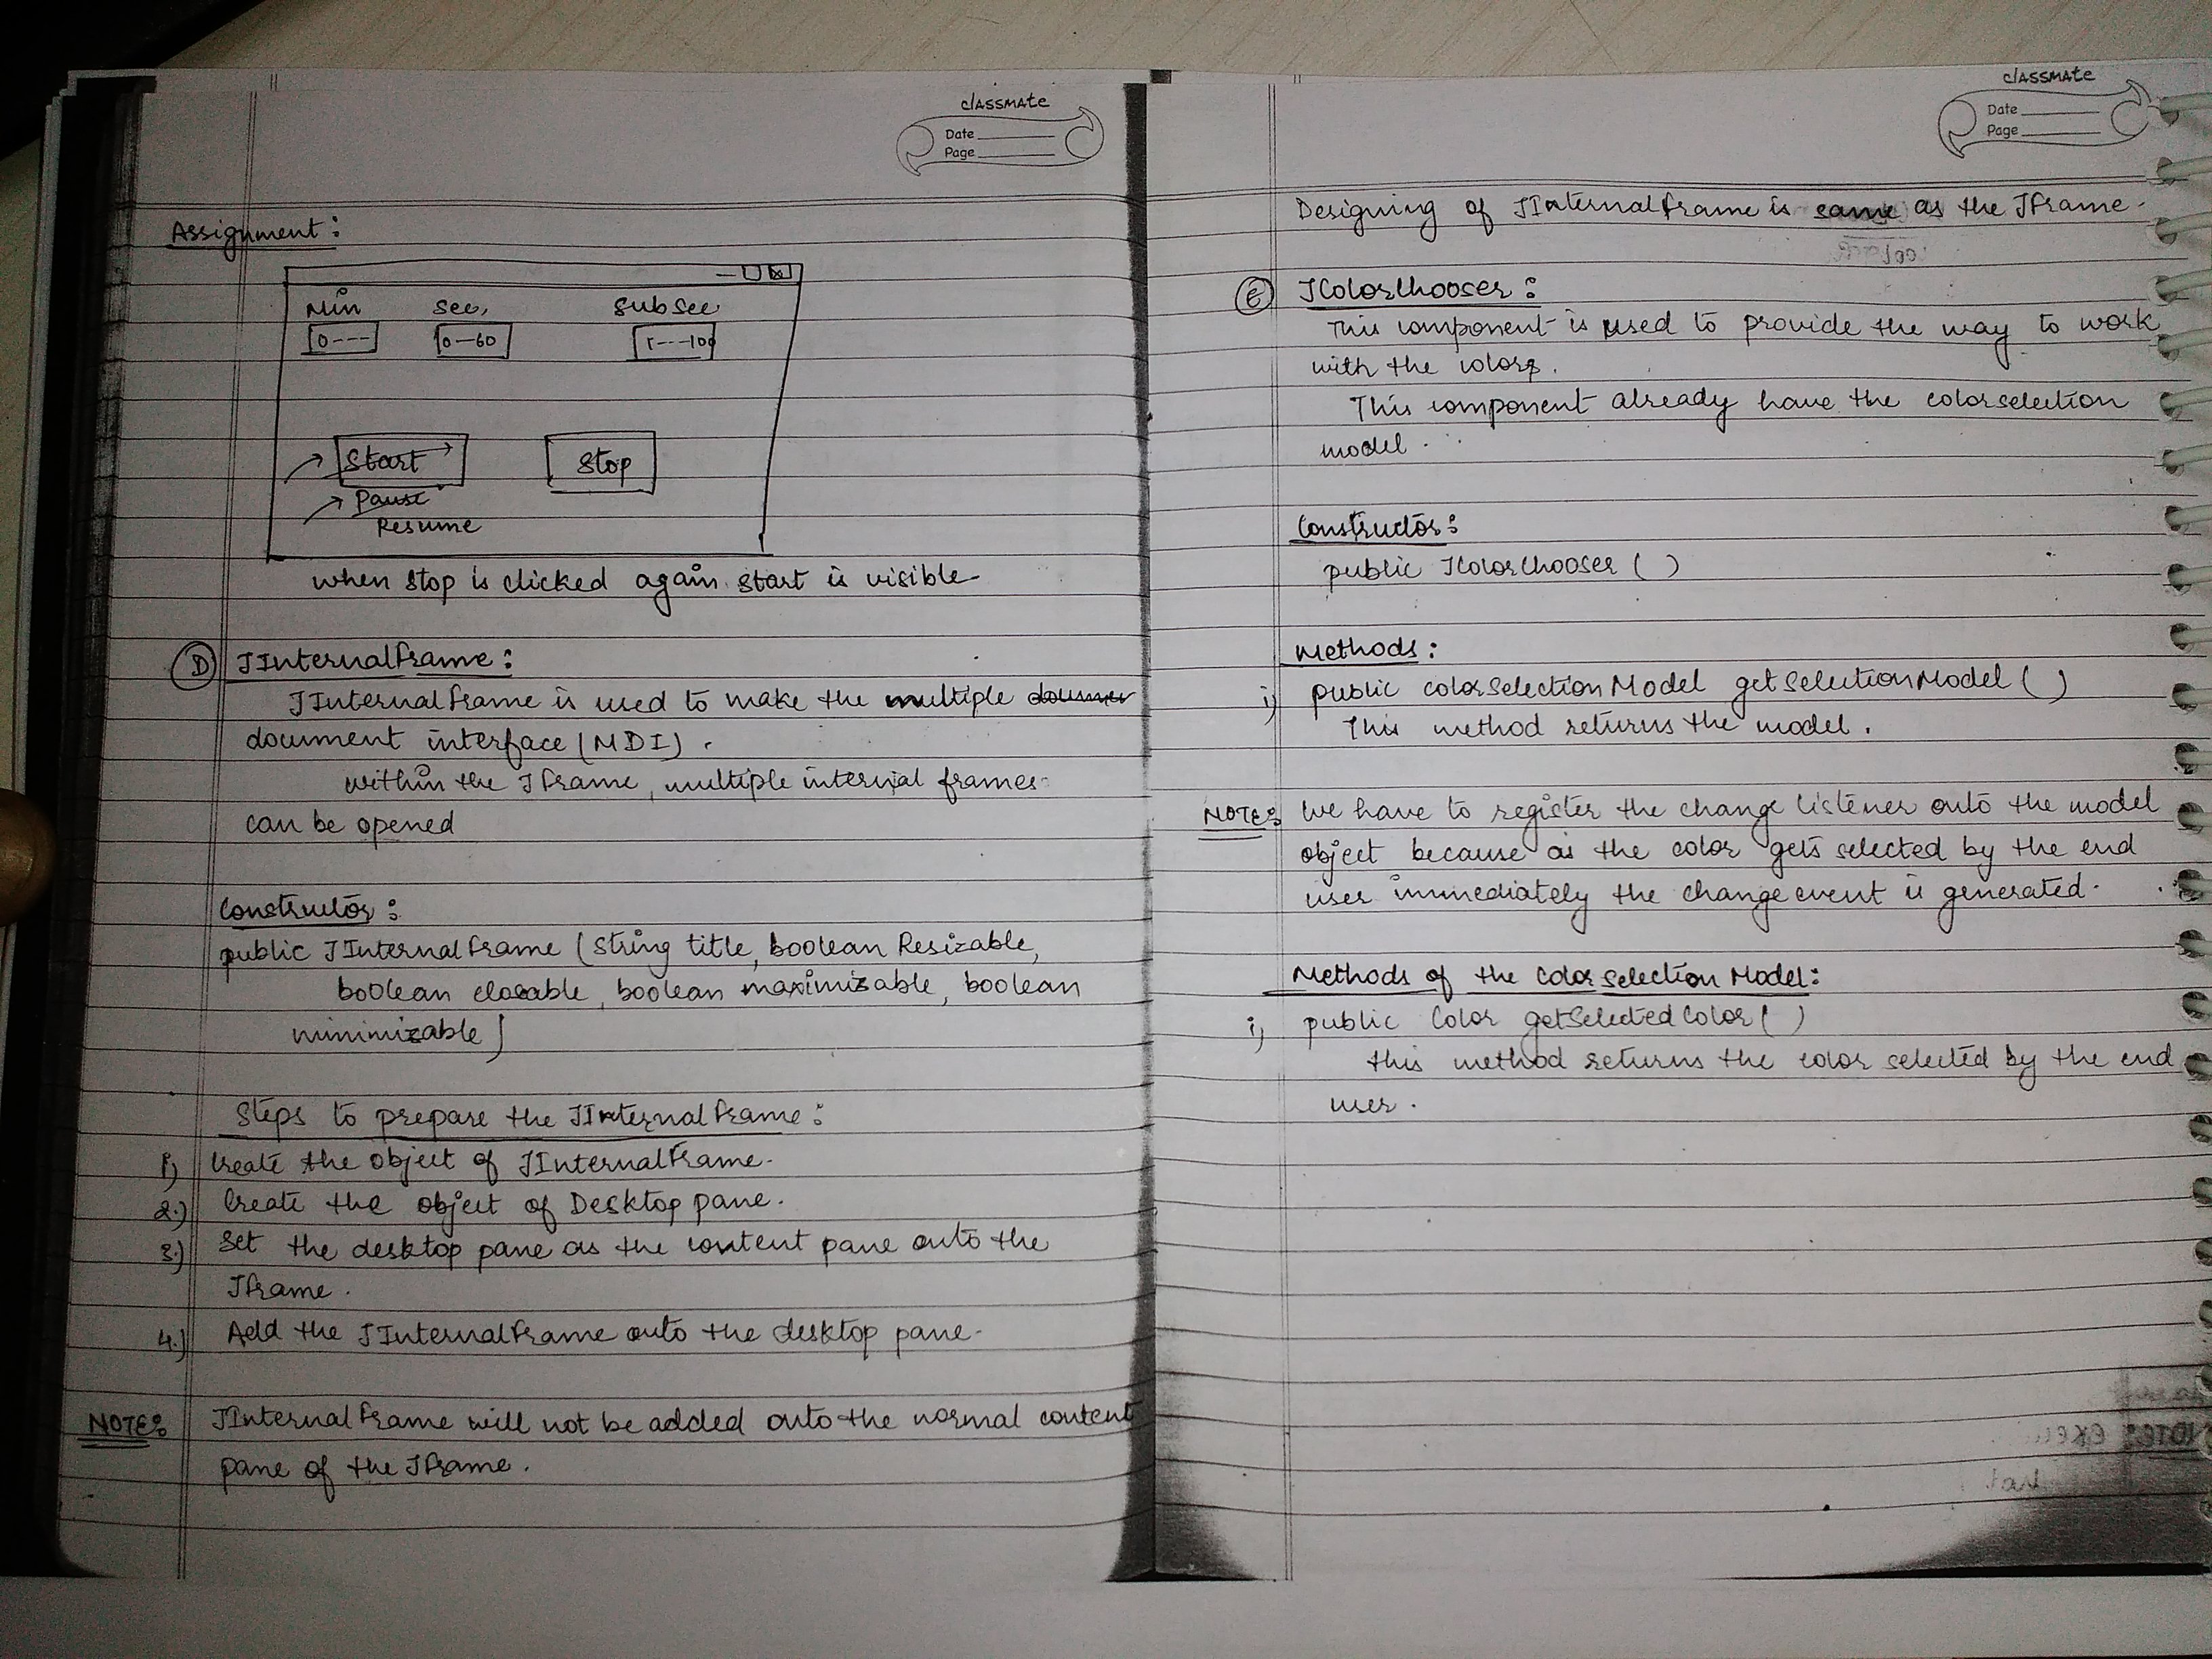 classmate
Date
Page
Assignment:
Min sec, subsec
0--- 0-60 1---100
Start Stop
Pause
Resume
when stop is clicked again start is visible.
D JInternalFrame:
JInternalFrame is used to make the multiple
document interface (MDI).
within the JFrame, multiple internal frames
can be opened
Constructor:
public JInternalFrame (String title, boolean Resizable,
boolean closable, boolean maximizable, boolean
minimizable)
Steps to prepare the JInternalFrame:
1) Create the object of JInternalFrame.
2.) Create the object of Desktop pane.
3.) Set the desktop pane as the content pane onto the
JFrame.
4.) Add the JInternalFrame onto the desktop pane.
NOTE: JInternalFrame will not be added onto the normal content
pane of the JFrame.
classmate
Date
Page
Designing of JInternalFrame is same as the JFrame.
E JColorChooser:
This component is used to provide the way to work
with the colors.
This component already have the colorselection
model.
Constructor:
public JColorChooser ( )
Methods:
i) public colorSelectionModel getSelectionModel ( )
This method returns the model.
NOTE: We have to register the change listener onto the model
object because as the color gets selected by the end
user immediately the change event is generated.
Methods of the Color Selection Model:
i) public Color getSelectedColor ( )
this method returns the color selected by the end
user.